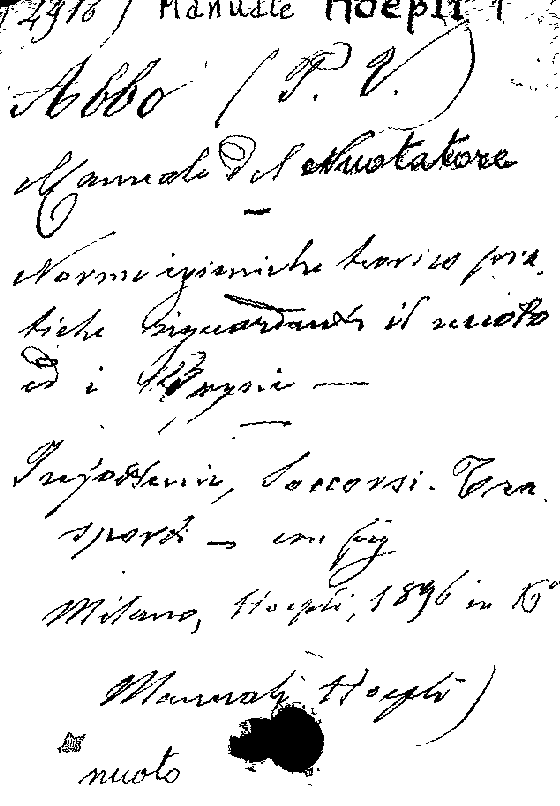 2916) Manuale Hoepli 1
Abbo (P. V.)
Manuale del Nuotatore
—
Norme igieniche teorico pra-
tiche riguardanti il nuoto
ed i Bagni —
—
Soccorsi. Tra-
sporti — con fig
Milano, Hoepli, 1896 in 16°
Manuali Hoepli)
nuoto